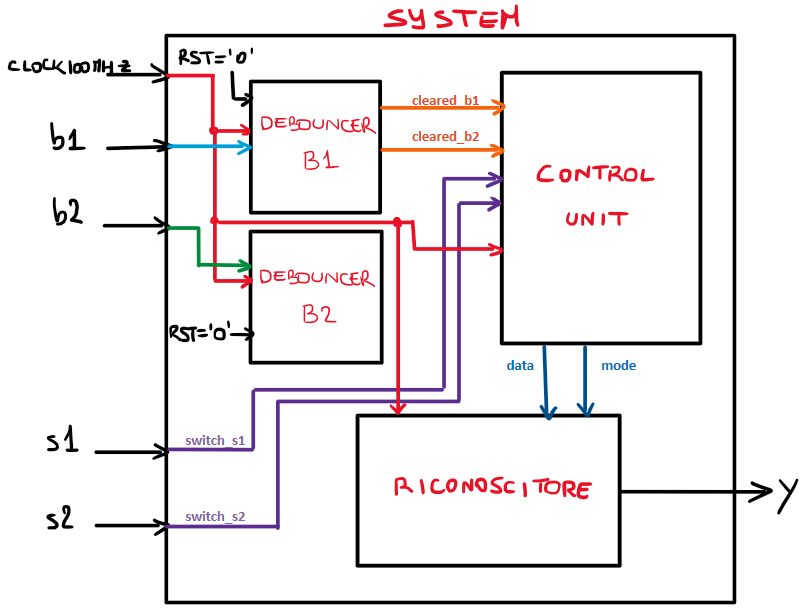 SYSTEM
CLOCK100MHZ
RST='0'
DEBOUNCER
B1
cleared_b1
cleared_b2
b1
CONTROL
UNIT
b2
DEBOUNCER
B2
RST='0'
data
mode
s1
switch_s1
RICONOSCITORE
Y
s2
switch_s2